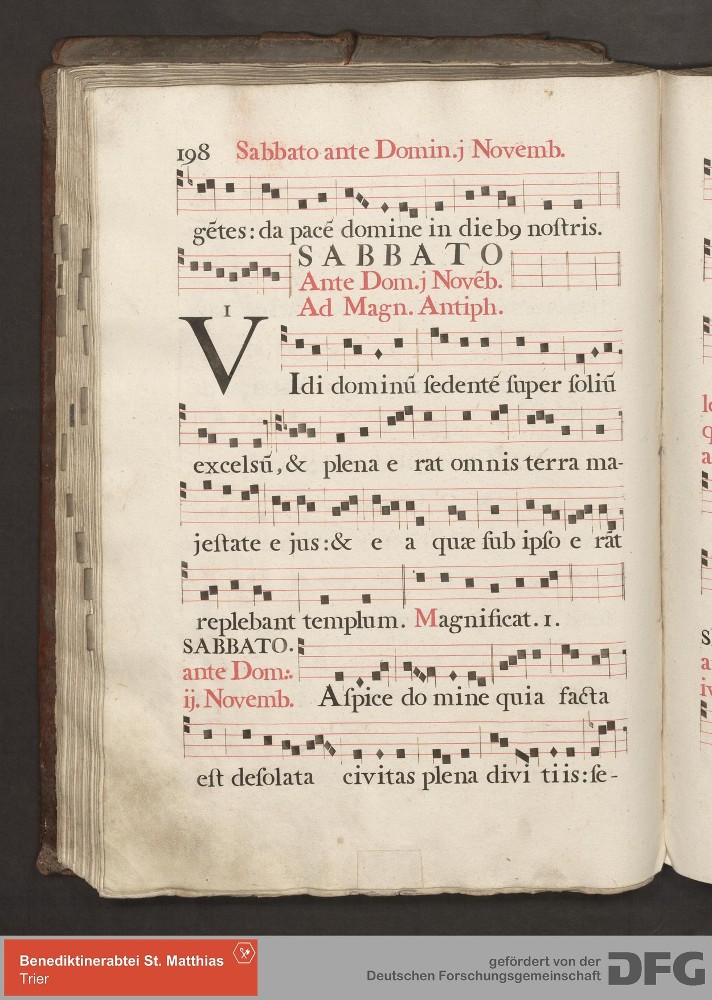 198 Sabbato ante Domin.j Novemb.
gētes: da pacē domine in dieb9 noſtris.
SABBATO
Ante Dom.j Novēb.
Ad Magn. Antiph.
1
VIdi dominū ſedentē ſuper ſoliū
excelsū, & plena e rat omnis terra ma-
jeſtate e jus: & e a quæ ſub ipſo e rāt
replebant templum. Magnificat. 1.
SABBATO.
ante Dom:.
ij. Novemb. Aſpice do mine quia facta
eſt deſolata civitas plena divi tiis: ſe-
Benediktinerabtei St. Matthias
Trier
gefördert von der
Deutschen Forschungsgemeinschaft
DFG